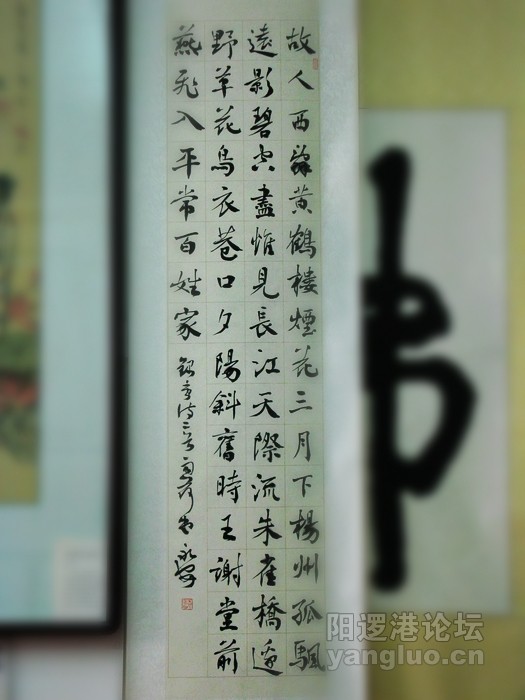 故人西辭黄鶴楼煙花三月下楊州孤颿
遠影碧空盡惟見長江天際流朱雀橋邊
野草花烏衣巷口夕陽斜舊時王謝堂前
燕飛入平常百姓家 録唐诗二首
阳逻港论坛
yangluo.cn